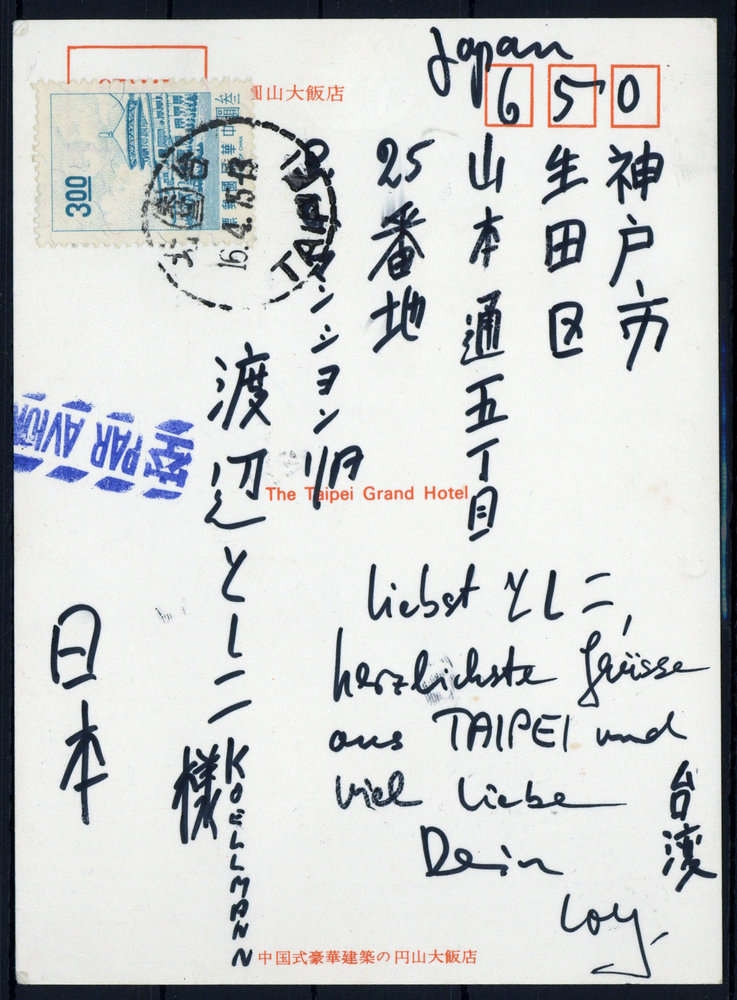 Japan
650
神戸市
生田区
山本通五丁目
25番地
マンション 1階
渡辺とし二 様
KOELLMANN
日本
liebst とし二,
herzlichste Grüsse
aus TAIPEI und
viel liebe
Dein
台湾
圓山大飯店
3.00
16.4.15-18
TAIPEI
PAR AVION
The Taipei Grand Hotel
中国式豪華建築の円山大飯店